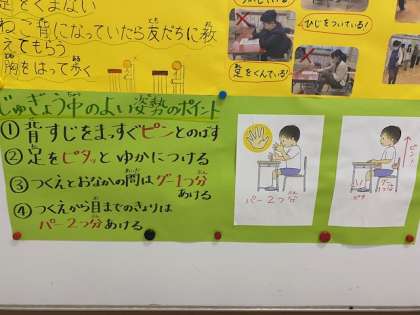 足をくまない
ねこ背になっていたら友だちに教
えてもらう
胸をはって歩く
ひじをついている!
足をくんでいる!
じゅぎょう中のよい姿勢のポイント
①背すじをまっすぐピンとのばす
②足をピタッとゆかにつける
③つくえとおなかの間はグー1つ分
あける
④つくえから目までのきょりは
パー2つ分あける
パー2つ分
ピーン
グー1つ分